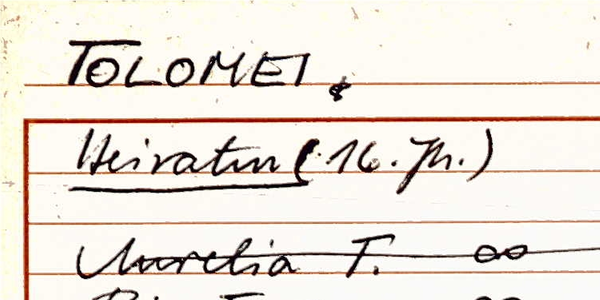 TOLOMEI
Heiraten (16. Jh.)
Aurelia T. ∞